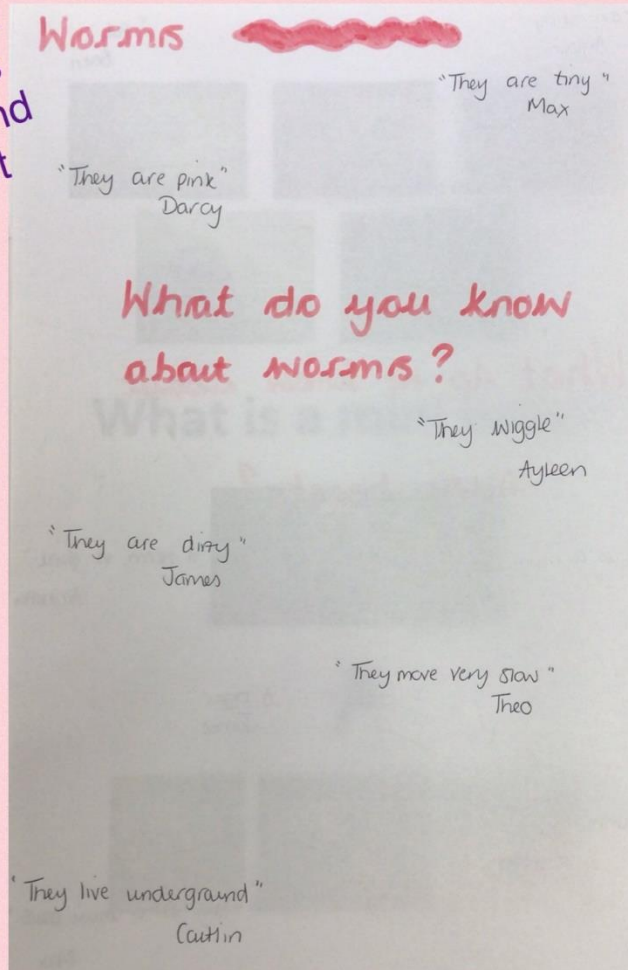 Worms
"They are tiny"
Max
"They are pink"
Darcy
What do you know
about worms?
"They wiggle"
Ayleen
"They are dirty"
James
"They move very slow"
Theo
"They live underground"
Caitlin